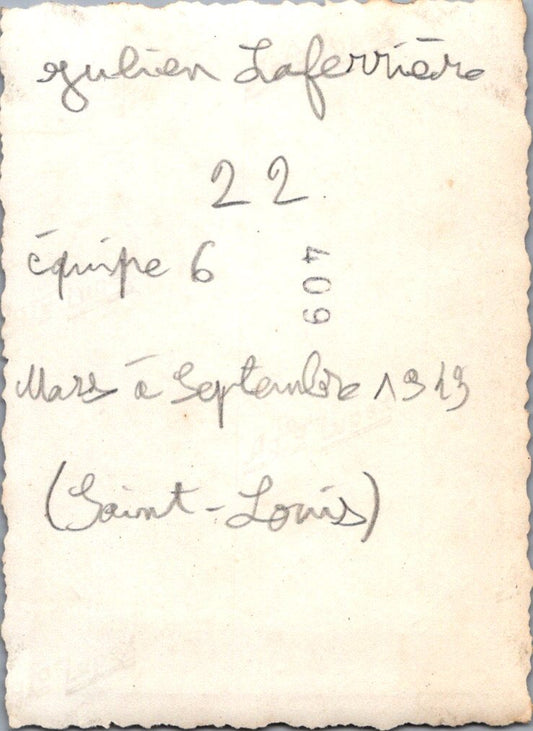 Julien Laferrière
22.
équipe 6
409
Mars à Septembre
(Saint-Louis)